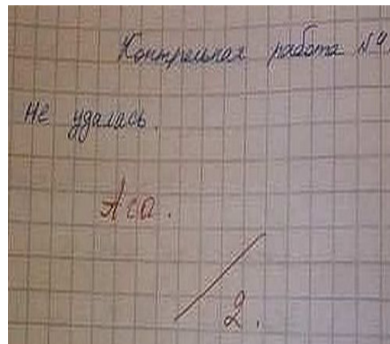 Контрольная работа №4.
Не удалась.
Ага.
2.